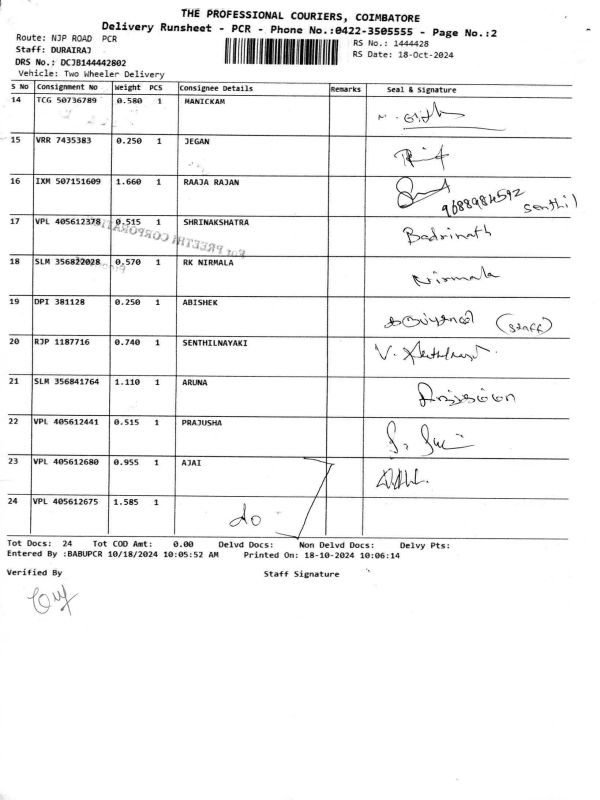 THE PROFESSIONAL COURIERS, COIMBATORE
Delivery Runsheet - PCR - Phone No.:0422-3505555 - Page No.:2
Route: NJP ROAD PCR
RS No.: 1444428
Staff: DURAIRAJ
RS Date: 18-Oct-2024
DRS No.: DCJB144442802
Vehicle: Two Wheeler Delivery
S No Consignment No Weight PCS Consignee Details Remarks Seal & Signature
14 TCG 50736789 0.580 1 MANICKAM
15 VRR 7435383 0.250 1 JEGAN
16 IXM 507151609 1.660 1 RAAJA RAJAN
9688984592 Senthil
17 VPL 405612378 0.515 1 SHRINAKSHATRA Badrinath
For PREETHI CORPORATION
18 SLM 356822028 0.570 1 RK NIRMALA Nirmala
19 DPI 381128 0.250 1 ABISHEK (staff)
20 RJP 1187716 0.740 1 SENTHILNAYAKI
21 SLM 356841764 1.110 1 ARUNA
22 VPL 405612441 0.515 1 PRAJUSHA
23 VPL 405612680 0.955 1 AJAI
24 VPL 405612675 1.585 1 do
Tot Docs: 24 Tot COD Amt: 0.00 Delvd Docs: Non Delvd Docs: Delvy Pts:
Entered By :BABUPCR 10/18/2024 10:05:52 AM Printed On: 18-10-2024 10:06:14
Verified By Staff Signature